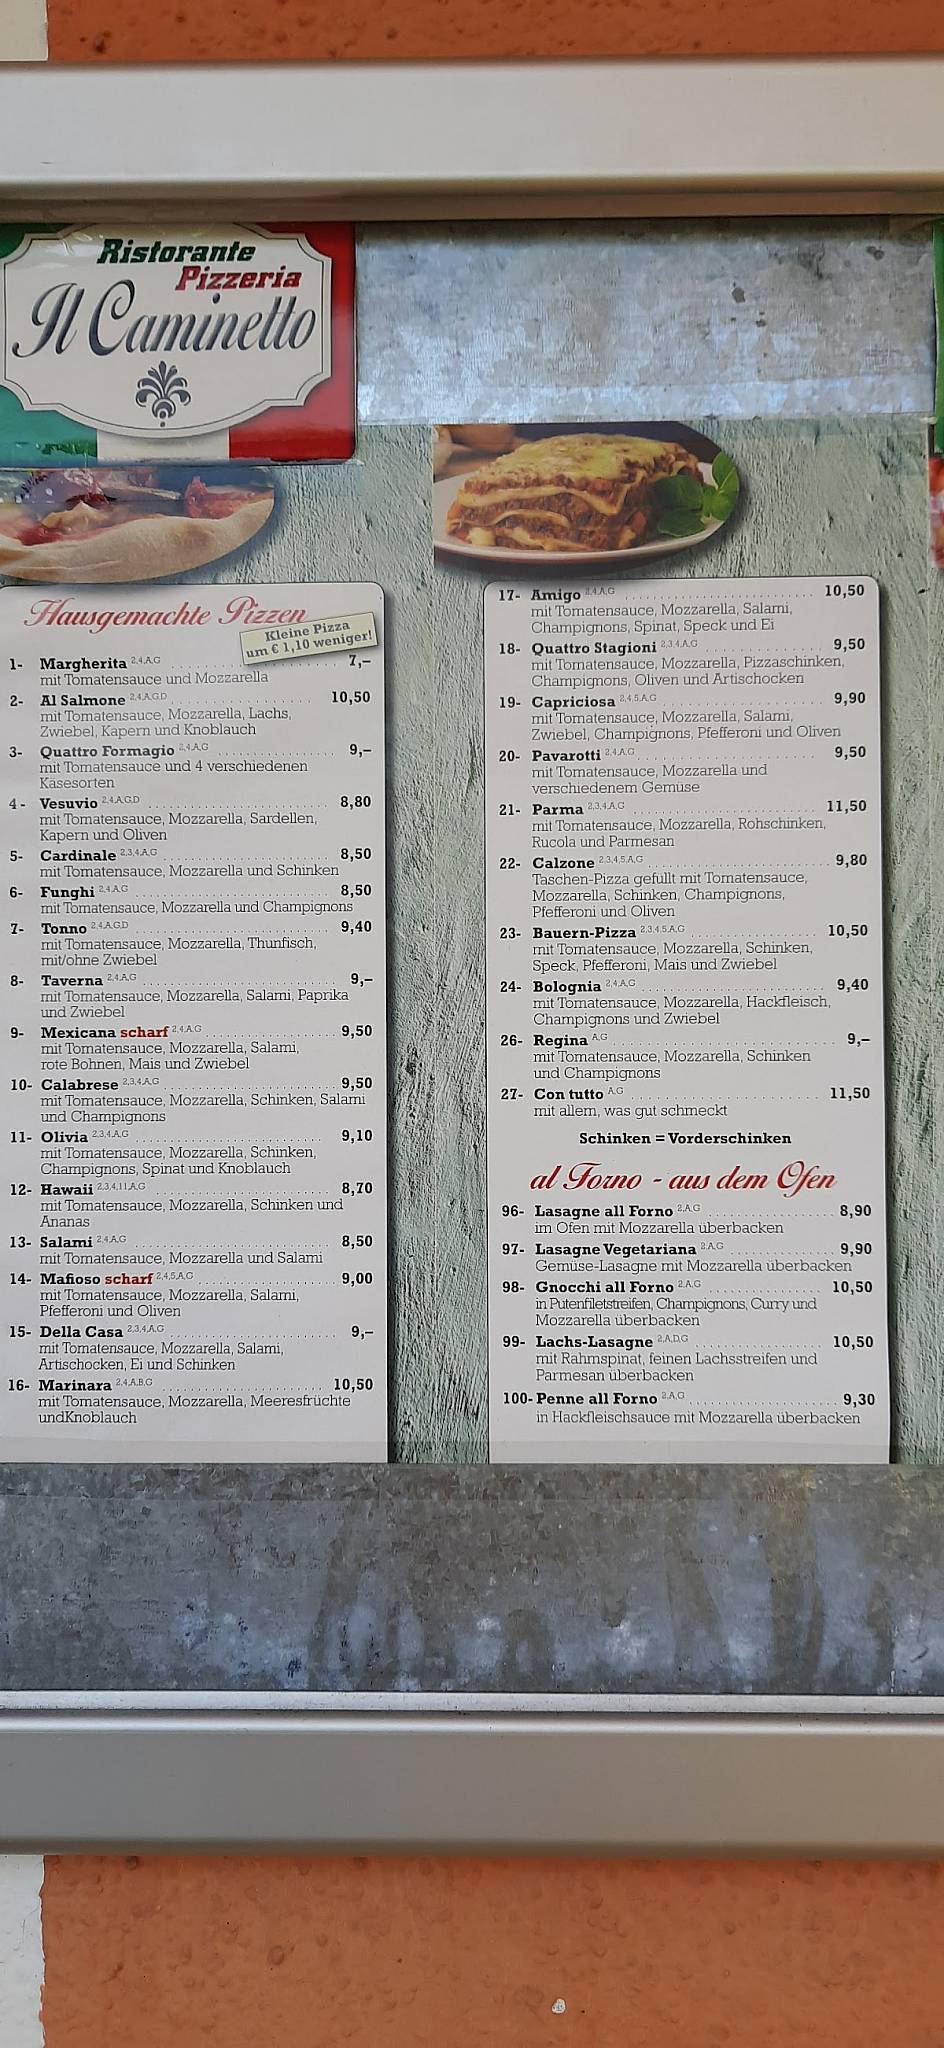 Ristorante
Pizzeria
Il Caminetto
Hausgemachte Pizzen
Kleine Pizza
um € 1,10 weniger!
1- Margherita 2,4,A,G 7,–
mit Tomatensauce und Mozzarella
2- Al Salmone 2,4,A,G,D 10,50
mit Tomatensauce, Mozzarella, Lachs,
Zwiebel, Kapern und Knoblauch
3- Quattro Formagio 2,4,A,G 9,–
mit Tomatensauce und 4 verschiedenen
Käsesorten
4- Vesuvio 2,4,A,G,D 8,80
mit Tomatensauce, Mozzarella, Sardellen,
Kapern und Oliven
5- Cardinale 2,3,4,A,G 8,50
mit Tomatensauce, Mozzarella und Schinken
6- Funghi 2,4,A,G 8,50
mit Tomatensauce, Mozzarella und Champignons
7- Tonno 2,4,A,G,D 9,40
mit Tomatensauce, Mozzarella, Thunfisch,
mit/ohne Zwiebel
8- Taverna 2,4,A,G 9,–
mit Tomatensauce, Mozzarella, Salami, Paprika
und Zwiebel
9- Mexicana scharf 2,4,A,G 9,50
mit Tomatensauce, Mozzarella, Salami,
rote Bohnen, Mais und Zwiebel
10- Calabrese 2,3,4,A,G 9,50
mit Tomatensauce, Mozzarella, Schinken, Salami
und Champignons
11- Olivia 2,3,4,A,G 9,10
mit Tomatensauce, Mozzarella, Schinken,
Champignons, Spinat und Knoblauch
12- Hawaii 2,3,4,11,A,G 8,70
mit Tomatensauce, Mozzarella, Schinken und
Ananas
13- Salami 2,4,A,G 8,50
mit Tomatensauce, Mozzarella und Salami
14- Mafioso scharf 2,4,5,A,G 9,00
mit Tomatensauce, Mozzarella, Salami,
Pfefferoni und Oliven
15- Della Casa 2,3,4,A,G 9,–
mit Tomatensauce, Mozzarella, Salami,
Artischocken, Ei und Schinken
16- Marinara 2,4,A,B,G 10,50
mit Tomatensauce, Mozzarella, Meeresfrüchte
undKnoblauch
17- Amigo 2,4,A,G 10,50
mit Tomatensauce, Mozzarella, Salami,
Champignons, Spinat, Speck und Ei
18- Quattro Stagioni 2,3,4,A,G 9,50
mit Tomatensauce, Mozzarella, Pizzaschinken,
Champignons, Oliven und Artischocken
19- Capriciosa 2,4,5,A,G 9,90
mit Tomatensauce, Mozzarella, Salami,
Zwiebel, Champignons, Pfefferoni und Oliven
20- Pavarotti 2,4,A,G 9,50
mit Tomatensauce, Mozzarella und
verschiedenem Gemüse
21- Parma 2,3,4,A,G 11,50
mit Tomatensauce, Mozzarella, Rohschinken,
Rucola und Parmesan
22- Calzone 2,3,4,5,A,G 9,80
Taschen-Pizza gefüllt mit Tomatensauce,
Mozzarella, Schinken, Champignons,
Pfefferoni und Oliven
23- Bauern-Pizza 2,3,4,5,A,G 10,50
mit Tomatensauce, Mozzarella, Schinken,
Speck, Pfefferoni, Mais und Zwiebel
24- Bolognia 2,4,A,G 9,40
mit Tomatensauce, Mozzarella, Hackfleisch,
Champignons und Zwiebel
26- Regina A,G 9,–
mit Tomatensauce, Mozzarella, Schinken
und Champignons
27- Con tutto A,G 11,50
mit allem, was gut schmeckt
Schinken = Vorderschinken
al Forno - aus dem Ofen
96- Lasagne all Forno 2,A,G 8,90
im Ofen mit Mozzarella überbacken
97- Lasagne Vegetariana 2,A,G 9,90
Gemüse-Lasagne mit Mozzarella überbacken
98- Gnocchi all Forno 2,A,G 10,50
in Putenfiletstreifen, Champignons, Curry und
Mozzarella überbacken
99- Lachs-Lasagne 2,A,D,G 10,50
mit Rahmspinat, feinen Lachsstreifen und
Parmesan überbacken
100- Penne all Forno 2,A,G 9,30
in Hackfleischsauce mit Mozzarella überbacken